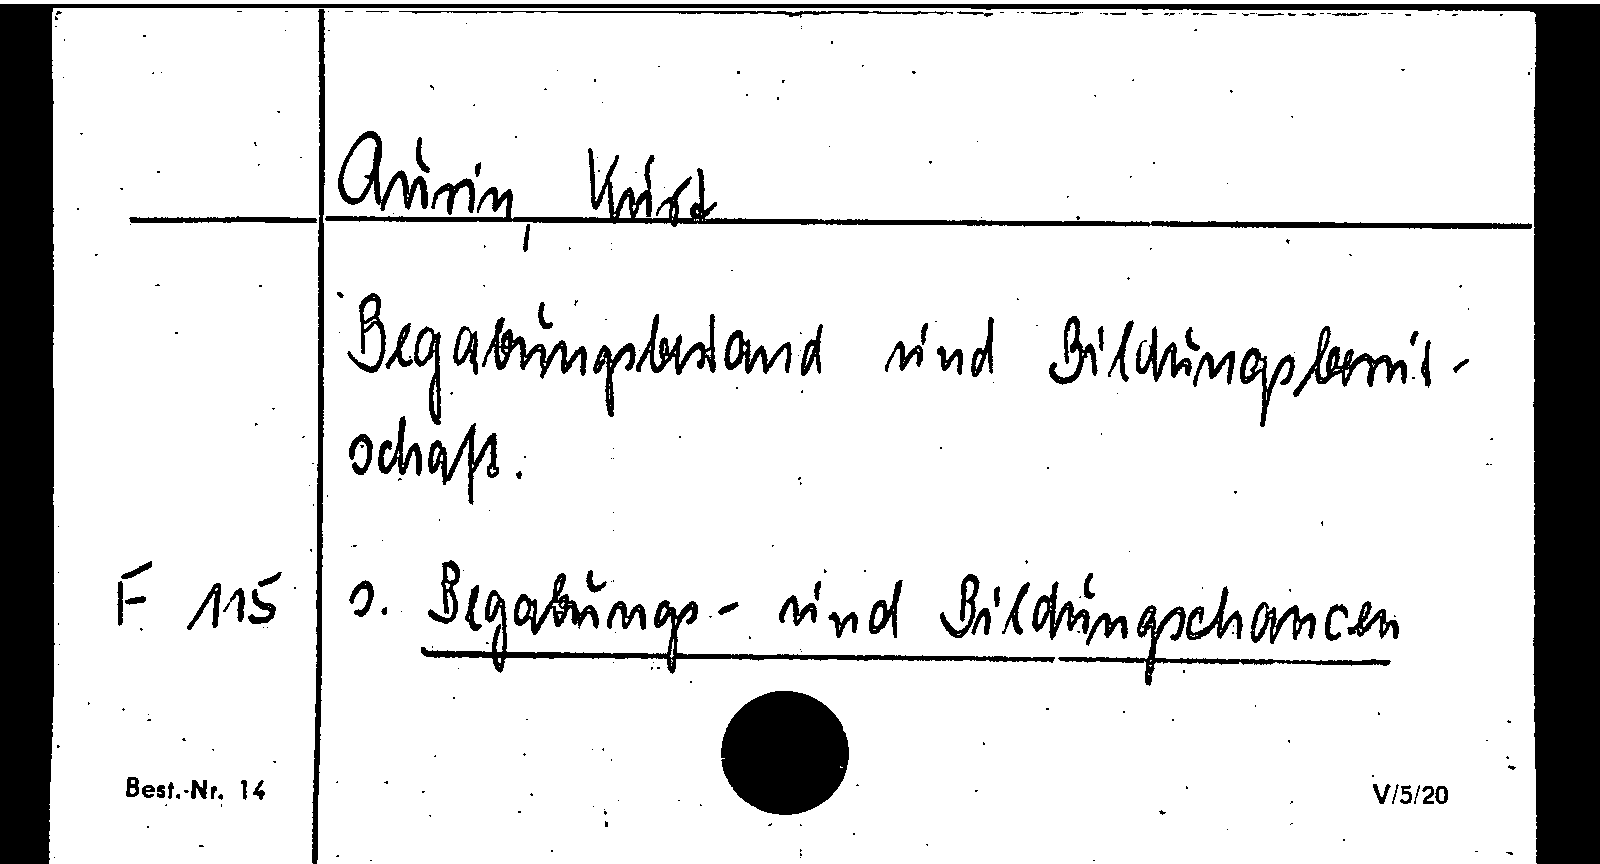 Aurin, Kurt
Begabungsbestand und Bildungsbereit-
schaft.
F 115 s. Begabungs- und Bildungschancen
Best.-Nr. 14 V/5/20